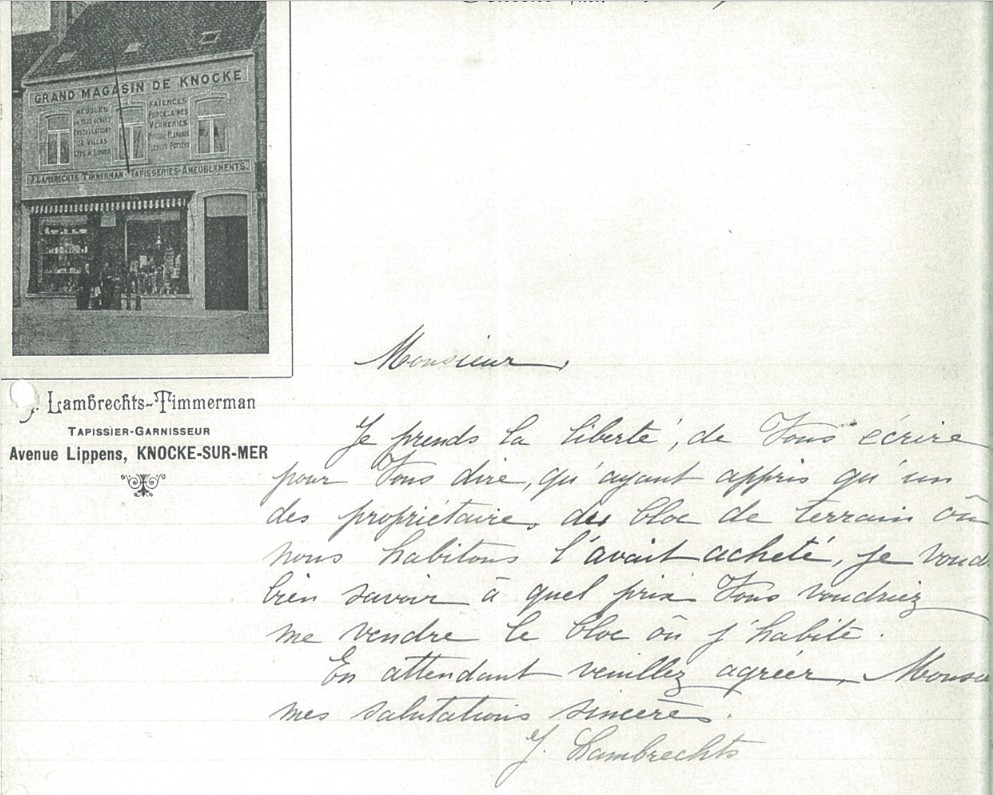 GRAND MAGASIN DE KNOCKE
MEUBLES
INSTALLATIONS
DE VILLAS
LITS A LOUER
FAIENCES
PORCELAINES
VERRERIES
POTERIE FLAMANDE
FLEMISH POTTERY
J. LAMBRECHTS TIMMERMAN - TAPISSERIES - AMEUBLEMENTS.
J. Lambrechts-Timmerman
TAPISSIER-GARNISSEUR
Avenue Lippens, KNOCKE-SUR-MER
Monsieur,
Je prends la liberté, de Vous écrire
pour Vous dire, qu'ayant appris qu'un
des propriétaires des bloc de terrain où
nous habitons l'avait acheté, je voud
bien savoir à quel prix Vous voudriez
me vendre le bloc où j'habite.
En attendant veuillez agréer, Monsi
mes salutations sincères.
J. Lambrechts